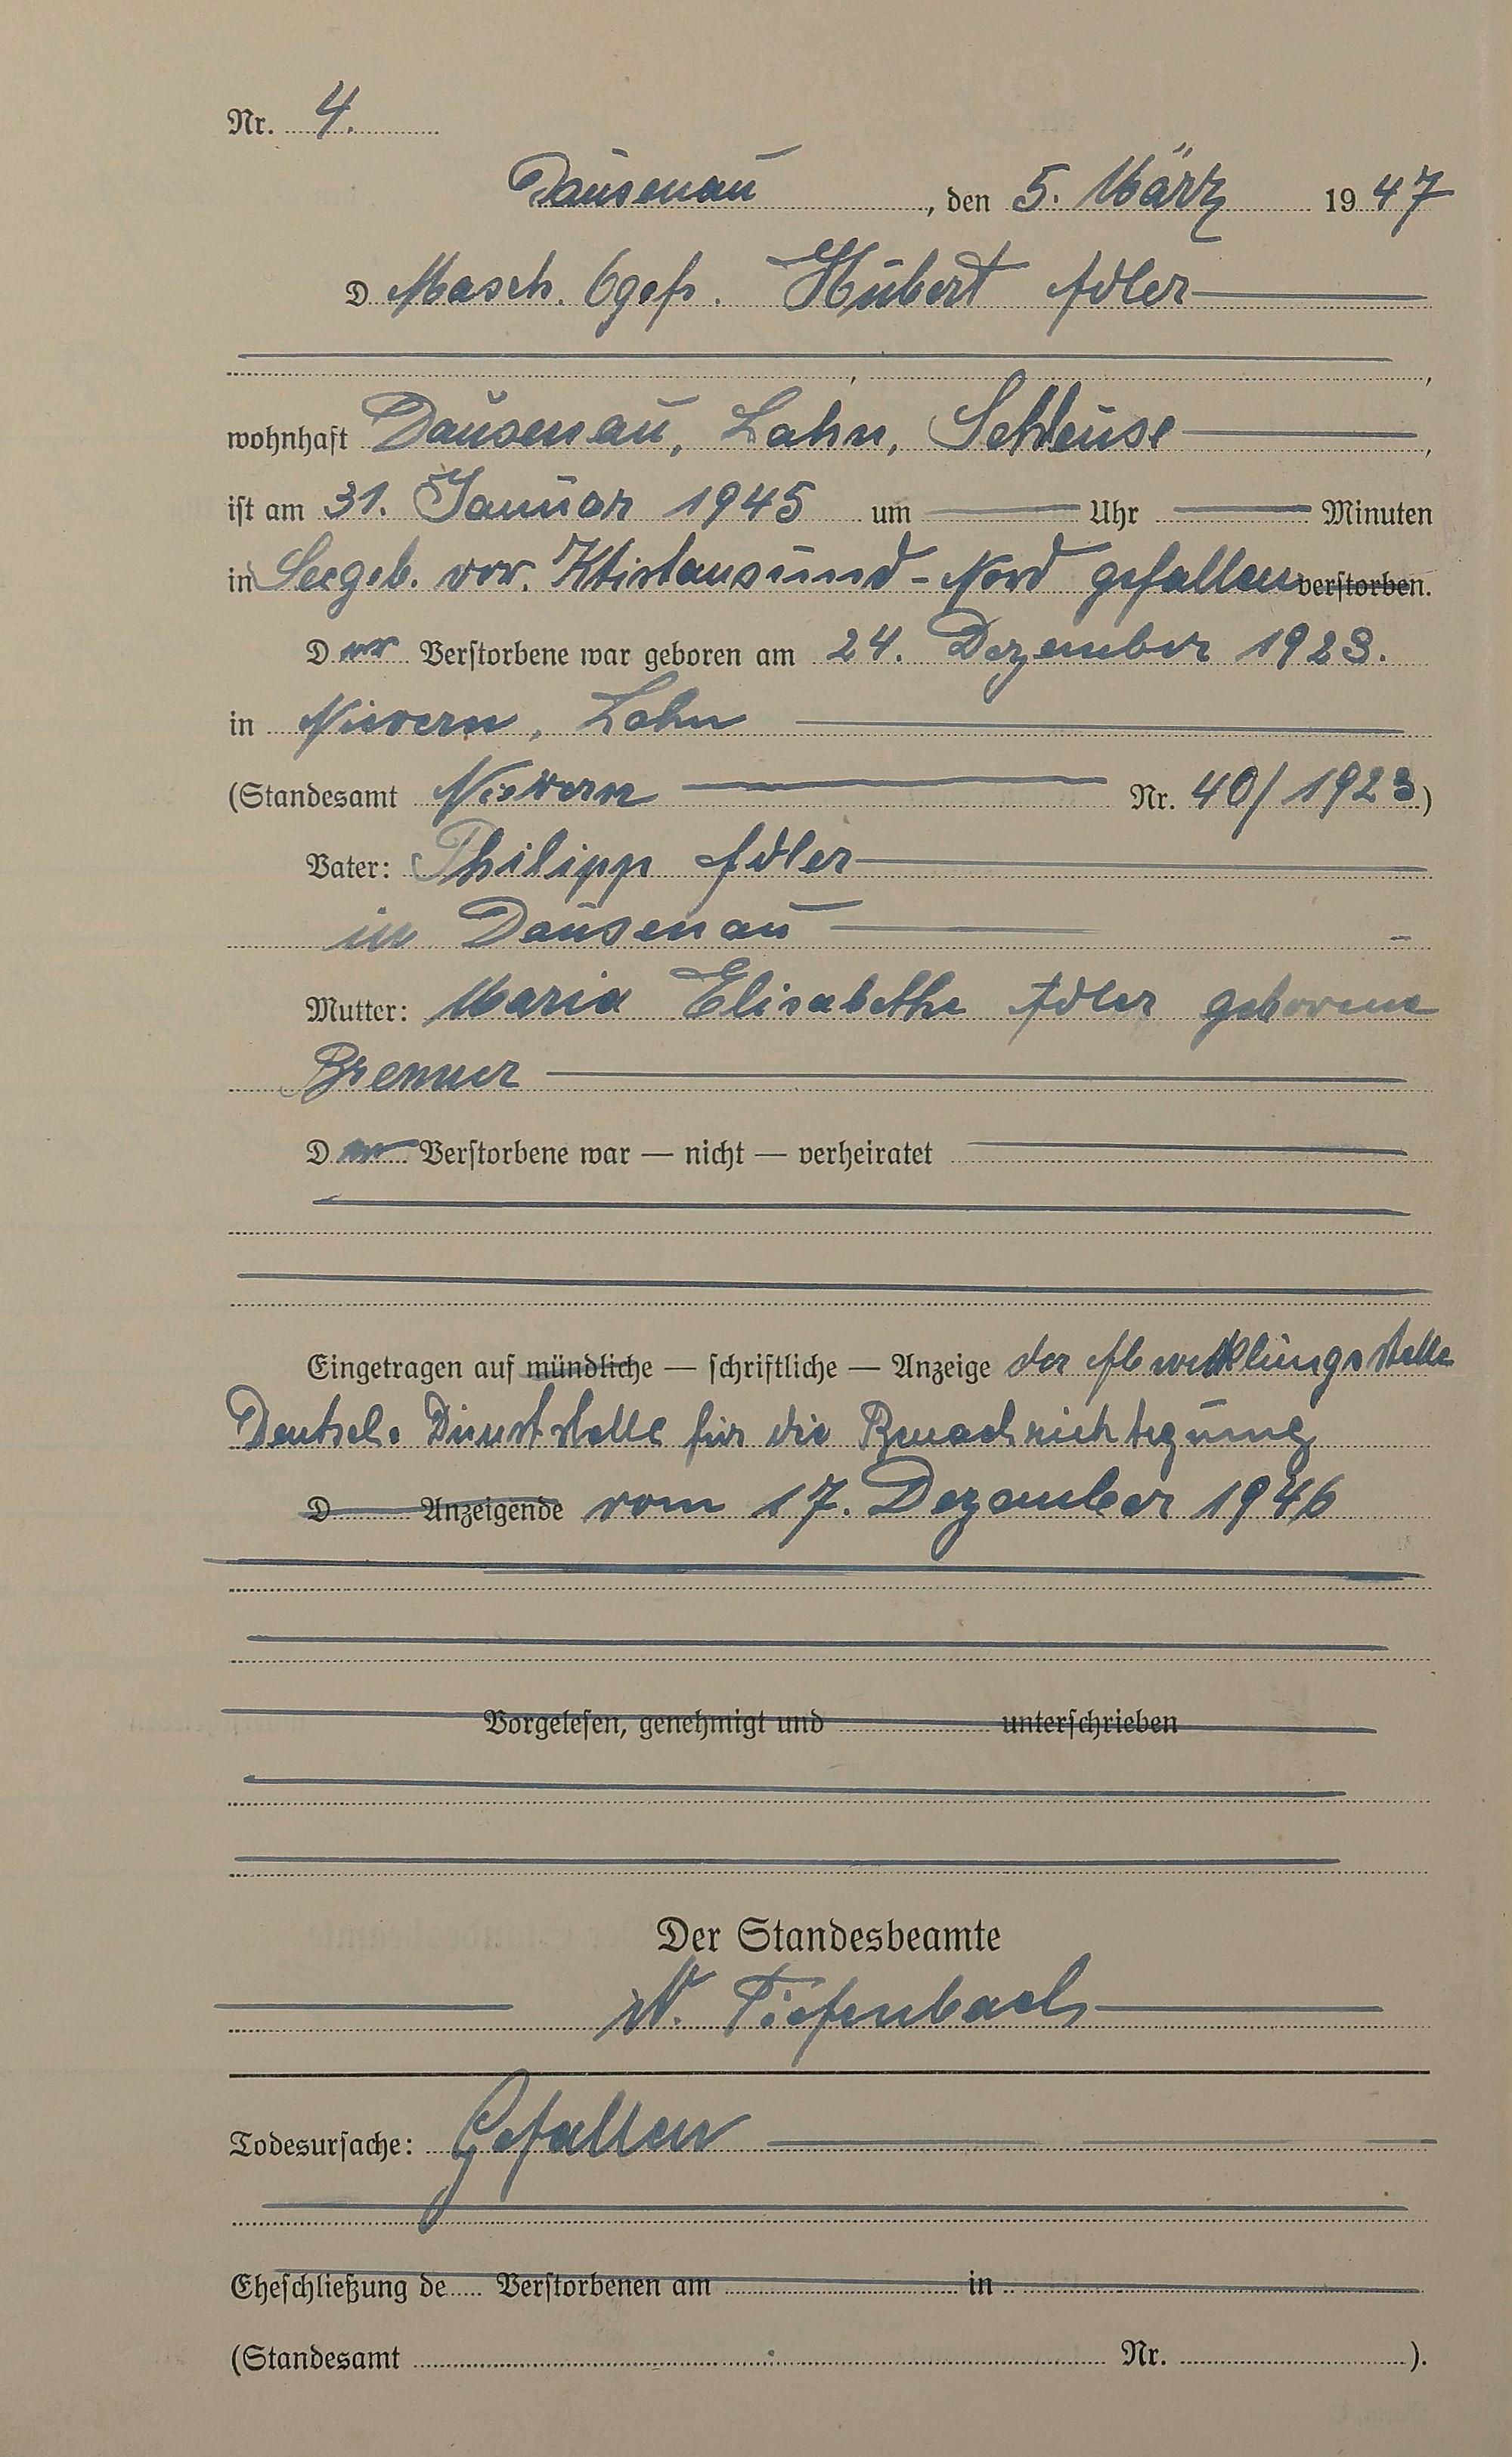 Nr. 4.
Dausenau, den 5. März 1947
D Masch. Ogefr. Hubert Adler
wohnhaft Dausenau, Lahn, Schleuse,
ist am 31. Januar 1945 um Uhr Minuten
in Seegeb. vor. Kristansund-Nord gefallen verstorben.
Der Verstorbene war geboren am 24. Dezember 1923.
in Nievern, Lahn
(Standesamt Nievern Nr. 40/1923)
Vater: Philipp Adler
in Dausenau
Mutter: Maria Elisabethe Adler geborene
Brenner
Der Verstorbene war — nicht — verheiratet
Eingetragen auf mündliche — schriftliche — Anzeige der Abwicklungsstelle
Deutsch. Dienststelle für die Benachrichtigung
D Anzeigende vom 17. Dezember 1946
Vorgelesen, genehmigt und unterschrieben
Der Standesbeamte
W. Tiefenbach
Todesursache: Gefallen
Eheschließung de Verstorbenen am in
(Standesamt Nr. ).